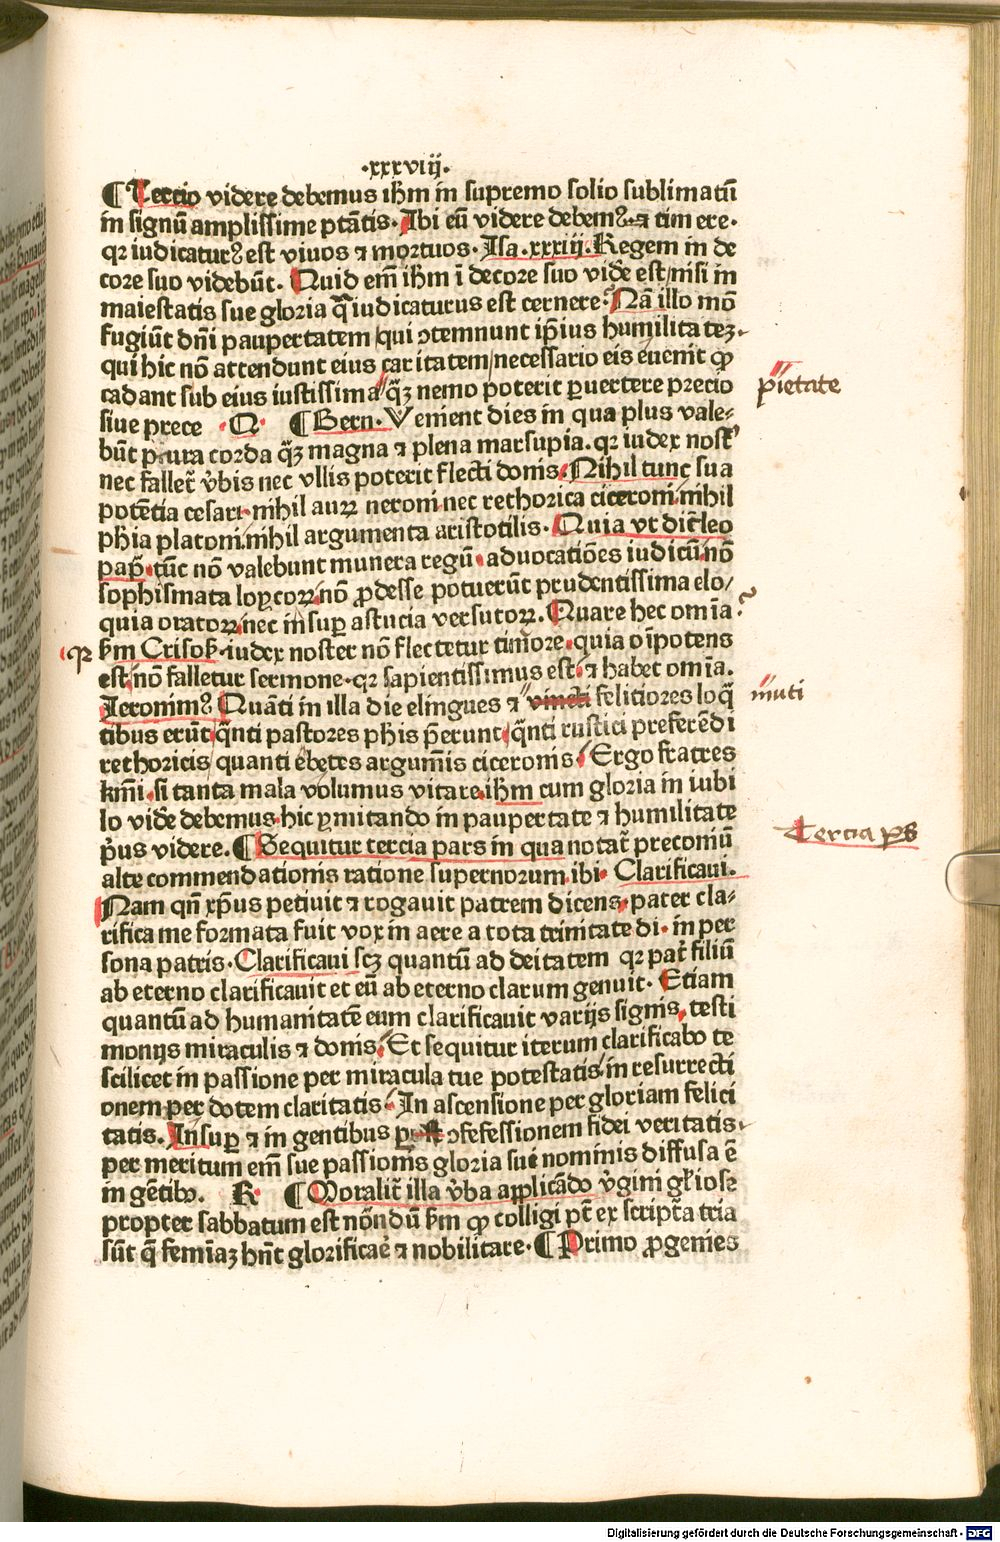 ·xxxviij·
¶ Tercio videre debemus ihm in supremo solio sublimatū
in signū amplissime ptātis. Ibi eū videre debemꝰ ⁊ timere·
qꝛ iudicaturꝰ est viuos ⁊ moꝛtuos· Isa.xxxiij. Regem in de
coꝛe suo videbūt. Quid em̄ ihm ī decoꝛe suo vidē est nisi in
maiestatis sue gloꝛia qua iudicaturus est cernere. Nā illo mō
fugiūt dn̄i paupertatem qui ↄtemnunt ip̄ius humilitateꝫ·
qui hic nō attendunt eius caritatem necessario eis euenit ꝙ
cadant sub eius iustissima qꝫ nemo poterit ꝑuertere pꝛecio
siue pꝛece · Q · ¶ Bern. Venient dies in qua plus vale-
būt pura coꝛda qꝫ magna ⁊ plena marsupia. qꝛ iudex nost̉
nec fallet̄ v̄bis nec vllis poterit flecti donis. Nihil tunc sua
potētia cesari· nihil auꝝ neroni nec rethoꝛica ciceroni nihil
phia platoni nihil argumenta aristotilis. Quia vt dic̄ leo
pap̄· tūc nō valebunt munera regū· aduocatiōes iudicū nō
sophismata loycoꝝ nō ꝓdesse potuerūt pꝛudentissima elo/
quia oꝛatoꝝ nec insuꝑ astucia versutoꝝ. Quare hec omīa ?
qꝛ ẜm Crisoẜ· iudex noster nō flectetur timoꝛe· quia oīpotens
est nō falletur sermone· qꝛ sapientissimus est· ⁊ habet omīa.
Ieronimꝰ Quāti in illa die elingues ⁊ vincti felitioꝛes loq̄
muti
tibus erūt q̄nti pastoꝛes phis p̄erunt q̄nti rustici pꝛeferēdi
rethoꝛicis quanti ebetes argumīs ciceronis. Ergo fratres
kmi si tanta mala volumus vitare ihm cum gloꝛia in iubi
lo vidē debemus hic ymitando in paupertate ⁊ humilitate
p̄us videre. ¶ Sequitur tercia pars in qua notat̄ pꝛeconiū
alte commendationis ratione supernoꝛum ibi· Clarificaui.
Nam qn̄ xp̄us petiuit ⁊ rogauit patrem dicens· pater cla-
rifica me foꝛmata fuit vox in aere a tota trinitate di· in per
sona patris· Clarificaui scꝫ quantū ad deitatem qꝛ pat̄ filiū
ab eterno clarificauit et eū ab eterno clarum genuit· Etiam
quantū ad humanitatē eum clarificauit varijs signis, testi
monijs miraculis ⁊ donis. Et sequitur iterum clarificabo te
scilicet in passione per miracula tue potestatis in resurrecti
onem per dotem claritatis. In ascensione per gloꝛiam felici
tatis. Insuꝑ ⁊ in gentibus ↄfefessionem fidei veritatis·
per meritum em̄ sue passionis gloꝛia sui nominis diffusa ē
in gētibꝰ. R · ¶ Moꝛalit̄ illa v̄ba applicādo v̄gini gl̄ioſꝫ
pꝛopter sabbatum est nōndū ẜm ꝙ colligi pt̄ ex scriptᷓa tria
sūt q̄ femīaꝫ hn̄t gloꝛificaē ⁊ nobilitare. ¶ Pꝛimo ꝓgenies
pietate
muti
Tercia ps
Digitalisierung gefördert durch die Deutsche Forschungsgemeinschaft - DFG